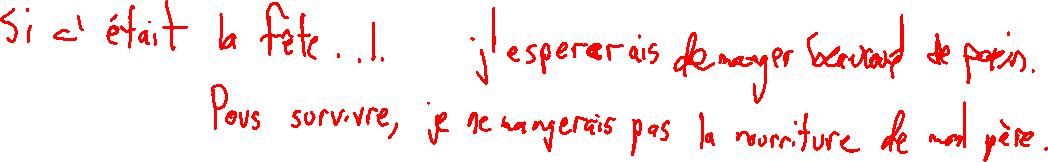 Si c'était la fête... j'espererais de manger beaucoup de
Pous survivre, je ne mangerais pas la nourriture de mon père.